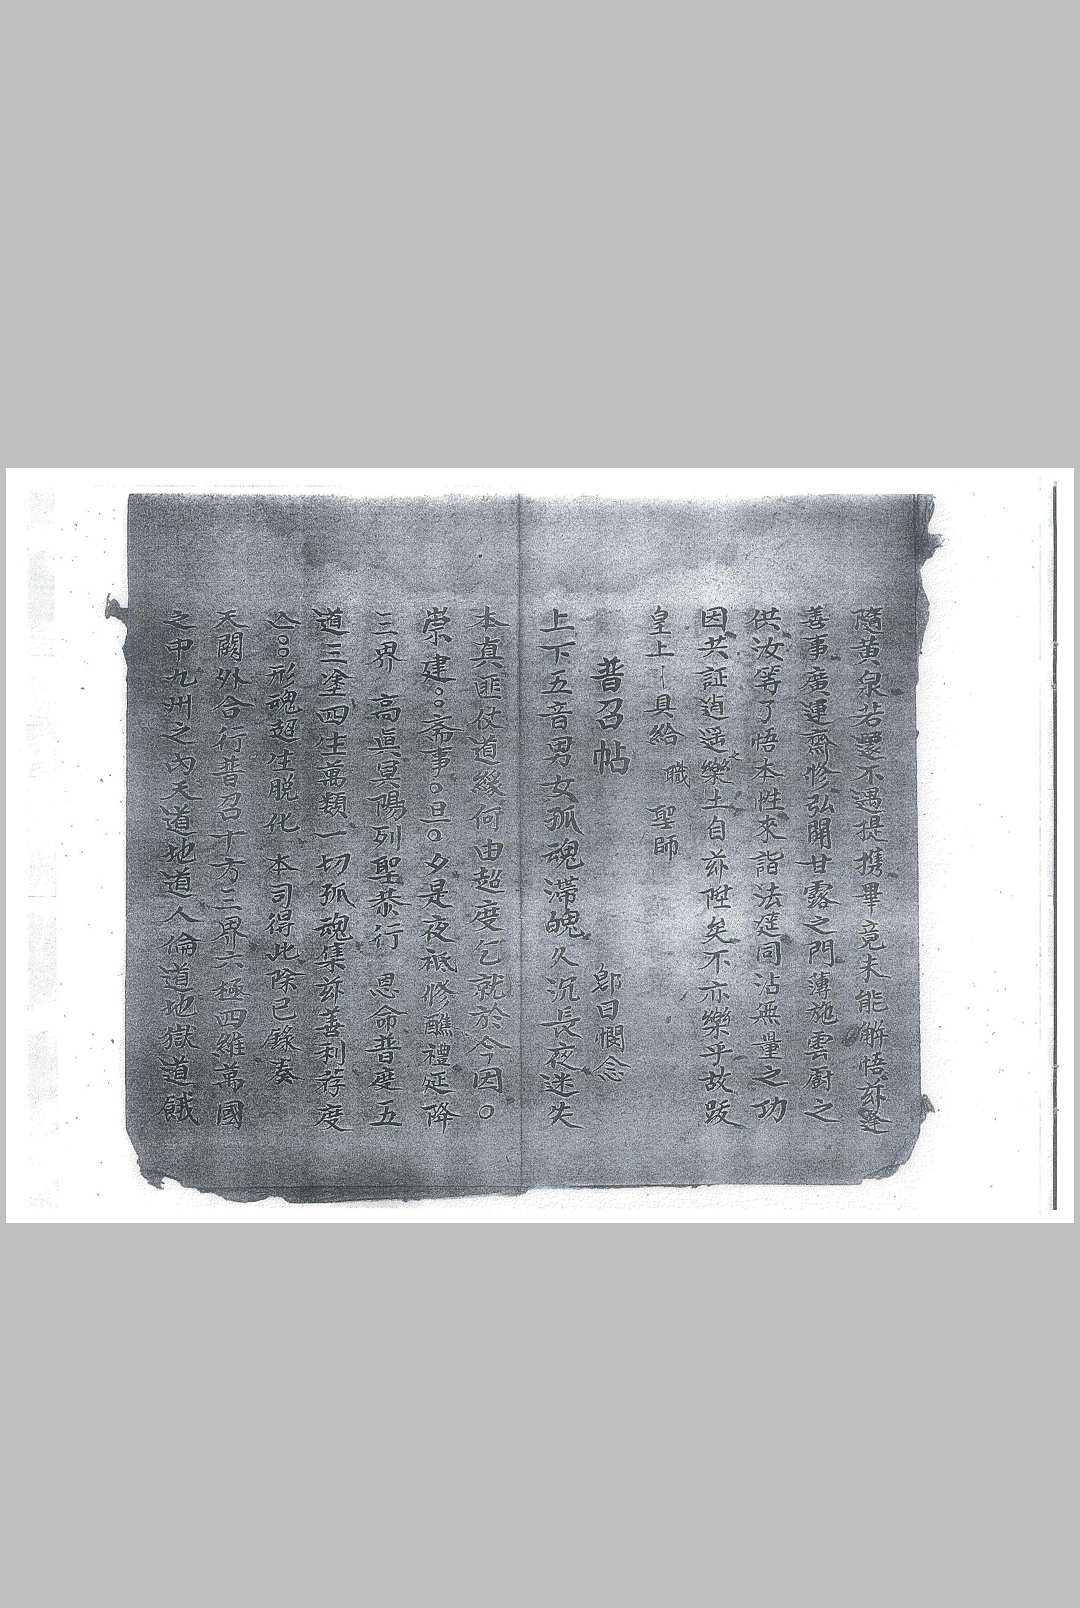 隨黃泉若要不遇提携畢竟未能解悟茲逢
善事廣運齋修弘開甘露之門薄施雲厨之
供汝等了悟本性來詣法筵同沾無量之功
因共証逍遥樂土自茲陞矣不亦樂乎故跋
皇上 具給 職 聖師
普召帖 即日憫念
上下五音男女孤魂滯魄久沉長夜迷失
本真匪仗道緣何由超度乞就於今因○
崇建○○斋事○旦○夕是夜祗修醮禮延降
三界 高真冥陽列聖恭行 恩命普度五
道三塗四生萬類一切孤魂集茲善利荐度
亼○○形魂超生脫化 本司得此除已錄奏
天闕外合行普召十方三界六極四維萬國
之中九州之內天道地道人倫道地獄道餓